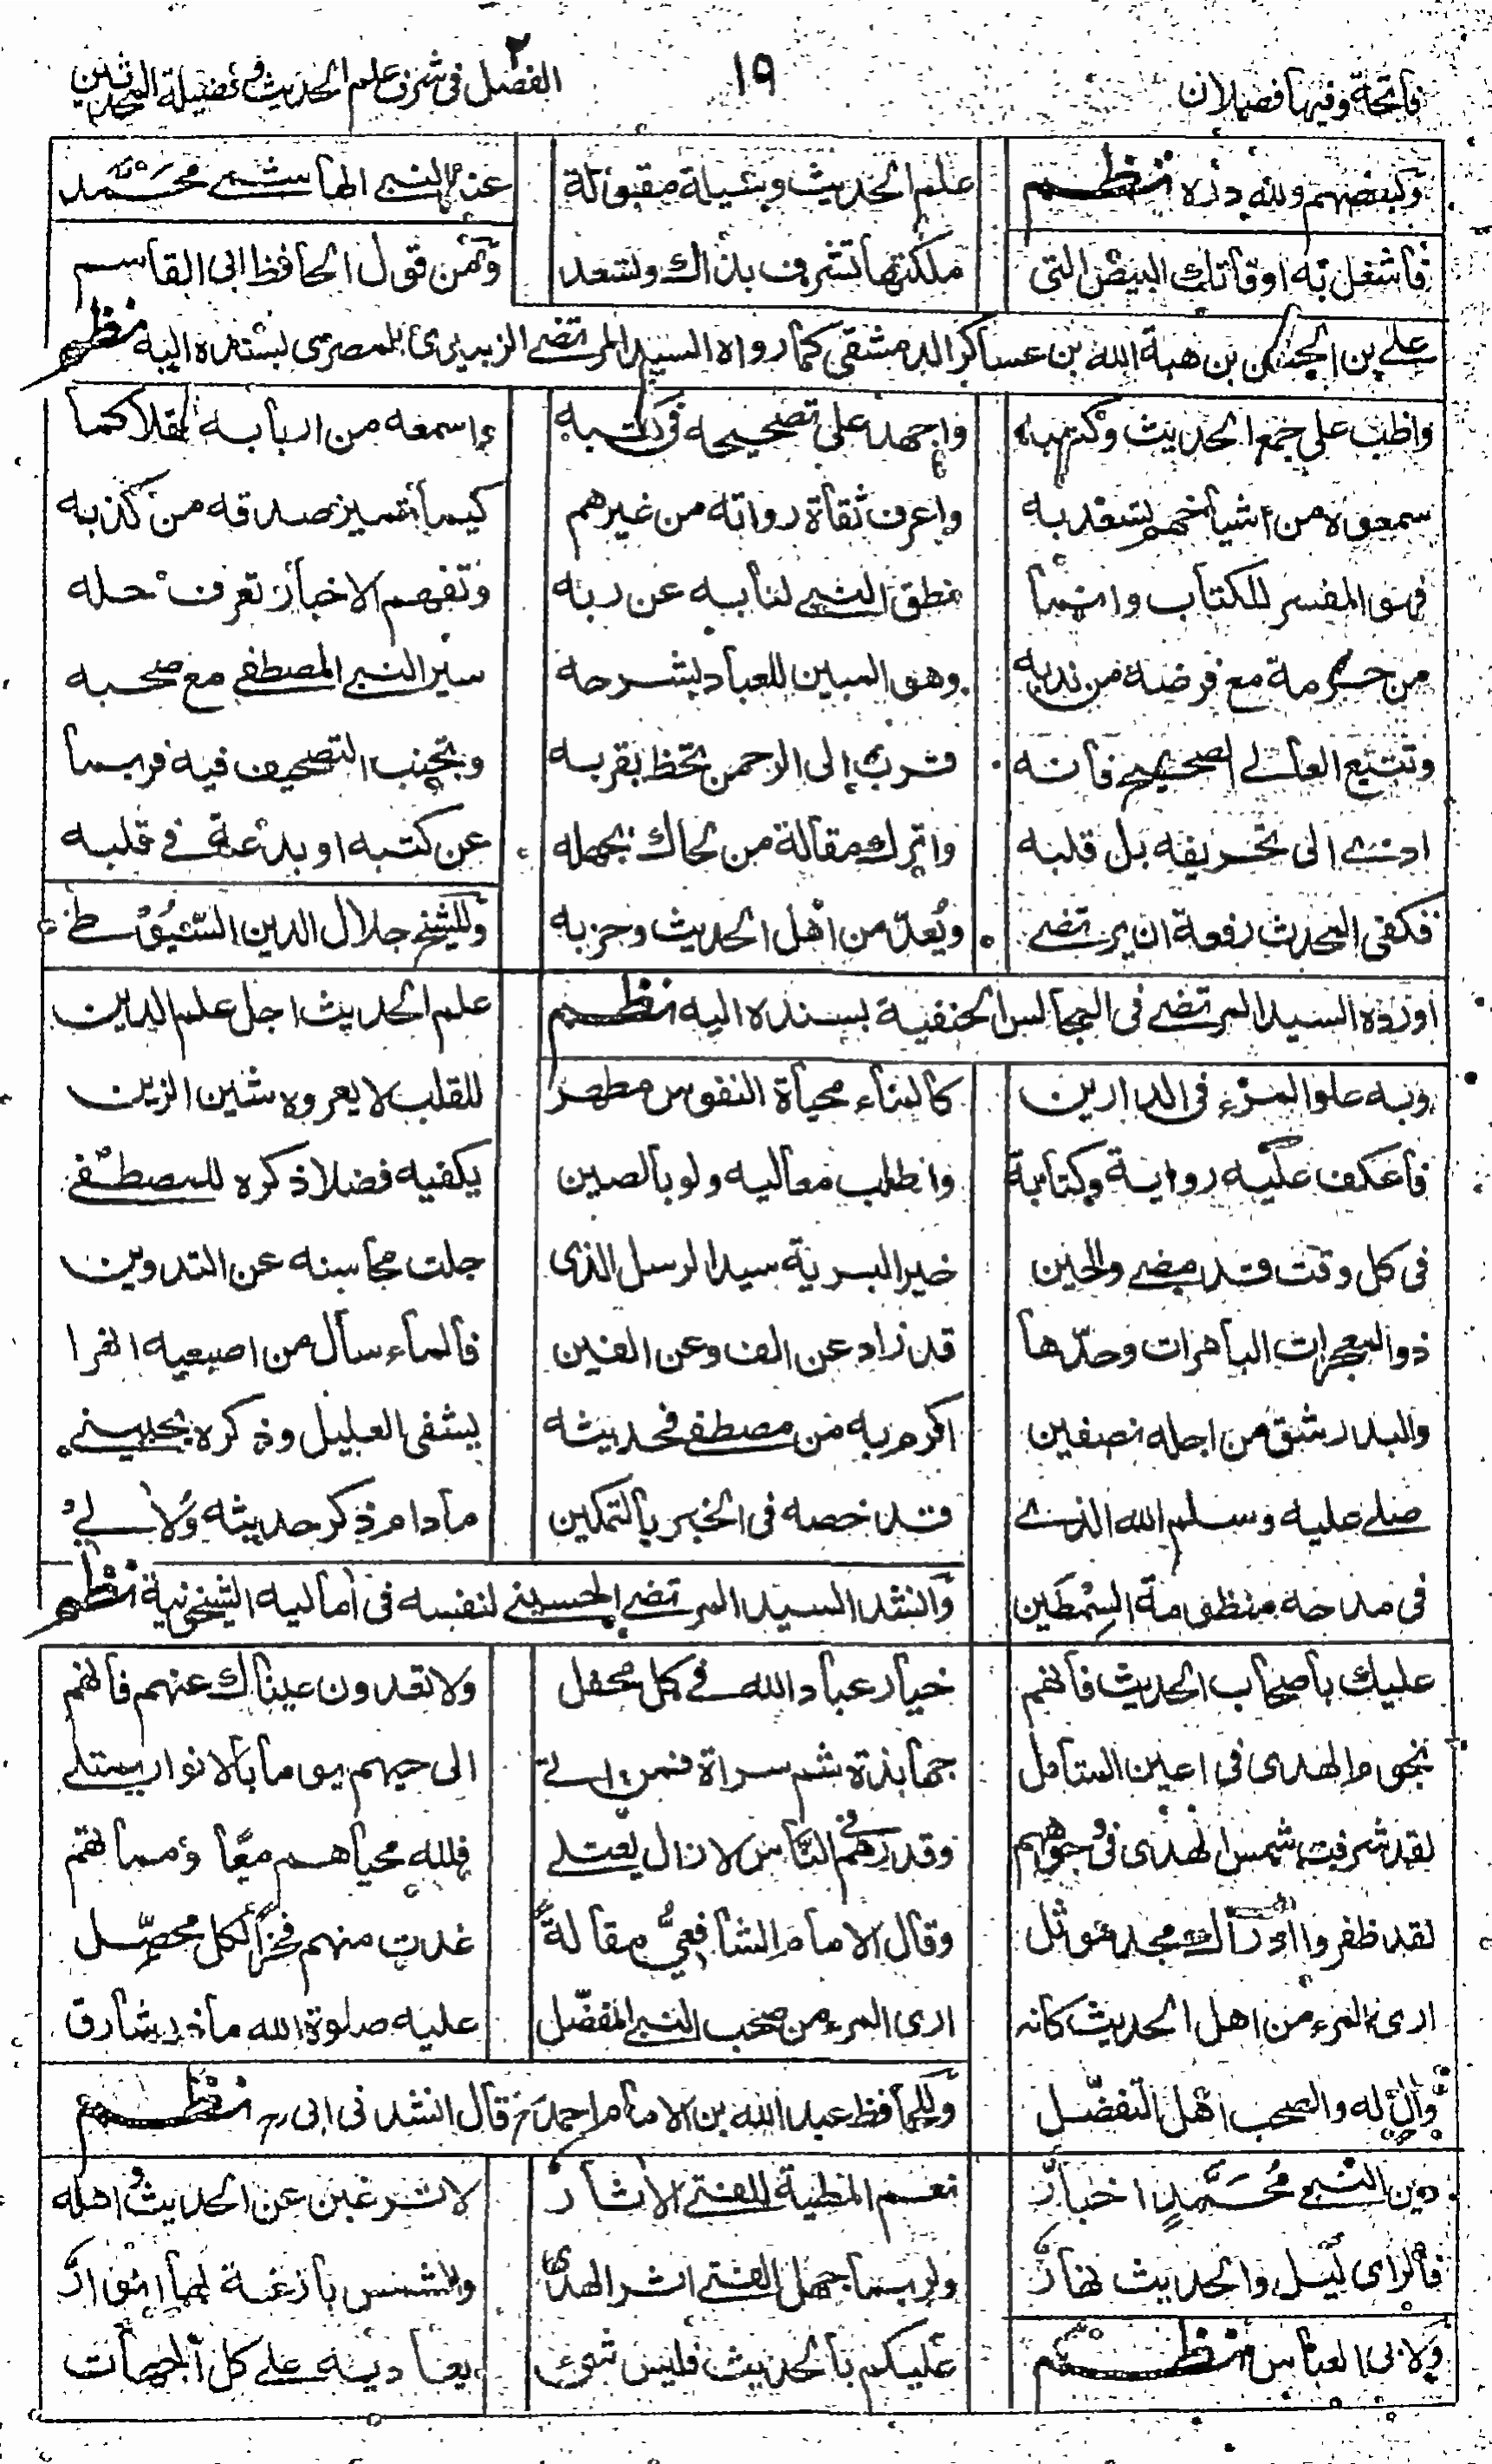 فاتحة وفيها فصلان ١٩ الفصل ٢ فى شرف علم الحديث وفضيلة المحدثين
ولبعضهم ولله دره نظم علم الحديث وسيلة مقبولة عند النبى الهاشمى محمد
فاشغل به اوقاتك البيض التى ملكتها تشرف بذاك وتسعد ومن قول الحافظ ابى القاسم
على بن الحسن بن هبة الله بن عساكر الدمشقى كما رواه السيد المرتضى الزبيدى المصرى بسنده اليه نظم
واظب على جمع الحديث وكتبه واجهد على تصحيحه فى كتبه واسمعه من اربابه نقلا كما
سمعوه من اشياخهم تسعد به واعرف ثقاة رواته من غيرهم كيما تميز صدقه من كذبه
فهو المفسر للكتاب وانما نطق النبى لنا به عن ربه وتفهم الاخبار تعرف حله
من حرمة مع فرضه من ندبه وهو المبين للعباد بشرحه سير النبى المصطفى مع صحبه
وتتبع العالى الصحيح فانه قرب الى الرحمن تحظ بقربه وتجنب التصحيف فيه فربما
ادى الى تحريفه بل قلبه واترك مقالة من لحاك بجهله عن كتبه او بدعة فى قلبه
فكفى المحدث رفعة ان يرتضى ويعد من اهل الحديث وحزبه وللشيخ جلال الدين السيوطى
اورده السيد المرتضى فى المجالس الحنفية بسنده اليه نظم علم الحديث اجل علم الدين
وبه علو المرء فى الدارين كالماء محياة النفوس مطهر للقلب لا يعروه شين الزين
فاعكف عليه رواية وكتابة واطلب معاليه ولو بالصين يكفيه فضلا ذكره للمصطفى
فى كل وقت قد مضى والحين خير البرية سيد الرسل الذى جلت محاسنه عن التدوين
ذو المعجزات الباهرات وحدها قد زاد عن الف وعن الفين فالماء سال من اصبعيه انفرا
والبدر شق من اجله نصفين اكرم به من مصطفى فحديثه يشفى العليل وذكره يحيينى
صلى عليه وسلم الله الذى قد خصه فى الخبر بالتمكين ما دام ذكر حديثه ولالى
فى مدحه منظومة السمطين وانشد السيد المرتضى الحسينى لنفسه فى اماليه الشيخونية نظم
عليك باصحاب الحديث فانهم خيار عباد الله فى كل محفل ولا تعدون عيناك عنهم فانهم
نجوم الهدى فى اعين المتامل جهابذة شم سراة فمن اتى الى حيهم يوما بالانوار يمتلى
لقد شرقت شمس الهدى فى وجوههم وقدرهم فى الناس لا زال يعتلى فلله محياهم معا ومماتهم
لقد ظفروا ادراك مجد موثل وقال الامام الشافعى مقالة غدت منهم فخرا لكل محصل
ارى المرء من اهل الحديث كانه ارى المرء من صحب النبى المفضل عليه صلوة الله ما ذر شارق
وال له والصحب اهل التفضل وللحافظ عبد الله بن الامام احمد قال انشد نى ابى رح نظم
دين النبى محمد اخبار نعم المطية للفتى الاثار لا ترغبن عن الحديث واهله
فالراى ليل والحديث نهار ولربما جهل الفتى اثر الهدى والشمس بازغة لها انوار
ولابى العباس نظم عليكم بالحديث فليس شىء يعادينه على كل الجهات